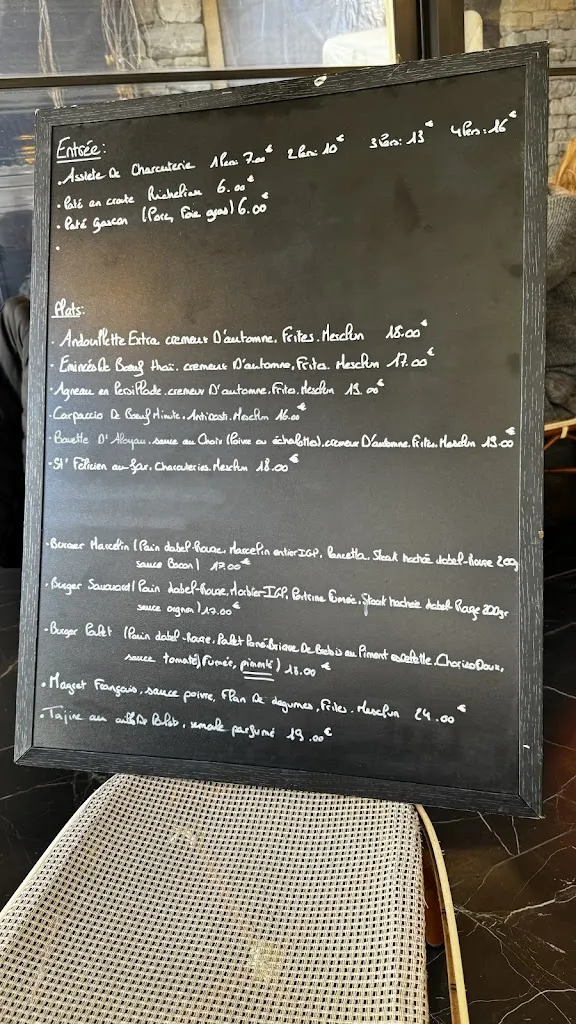 Entrée:
. Assiete De Charcuterie 1 Pers: 7.00€ 2 Pers: 10€ 3 Pers: 13€ 4 Pers: 16€
. Paté en croute Richelieu 6.00€
. Paté Gascon (Porc, Foie gras) 6.00€
.
Plats:
. Andouillette Extra. cremeux D'automne. Frites. Mesclun 18.00€
. Emincés De Bœuf thaï. cremeux D'automne, Frites. Mesclun 17.00€
. Agneau en Persillade. cremeux D'automne. Frites. Mesclun 19.00€
. Carpaccio De Bœuf Minute. Antipasti. Mesclun 16.00€
. Bavette D'Aloyau. sauce au Choix (Poivre ou échalottes). cremeux D'automne. Frites. Mesclun 19.00€
. St' Félicien au four. Charcuteries. Mesclun 18.00€
. Burger Marcelin (Pain Label-Rouge, Marcelin entier IGP, Pancetta, Steak hachée Label-Rouge 200g
sauce Bacon) 17.00€
. Burger Savoyard (Pain Label-Rouge, Morbier IGP, Poitrine Fumée, Steak hachée Label Rouge 200gr
sauce oignon) 17.00€
. Burger Poulet (Pain Label-Rouge, Poulet Pané, Brique De Brebis au Piment espelette, Chorizo Doux,
sauce tomate, Fumée, pimenté) 18.00€
. Magret Français, sauce poivre, Flan De Légumes, Frites. Mesclun 24.00€
. Tajine au Poulet, semoule parfumé 19.00€